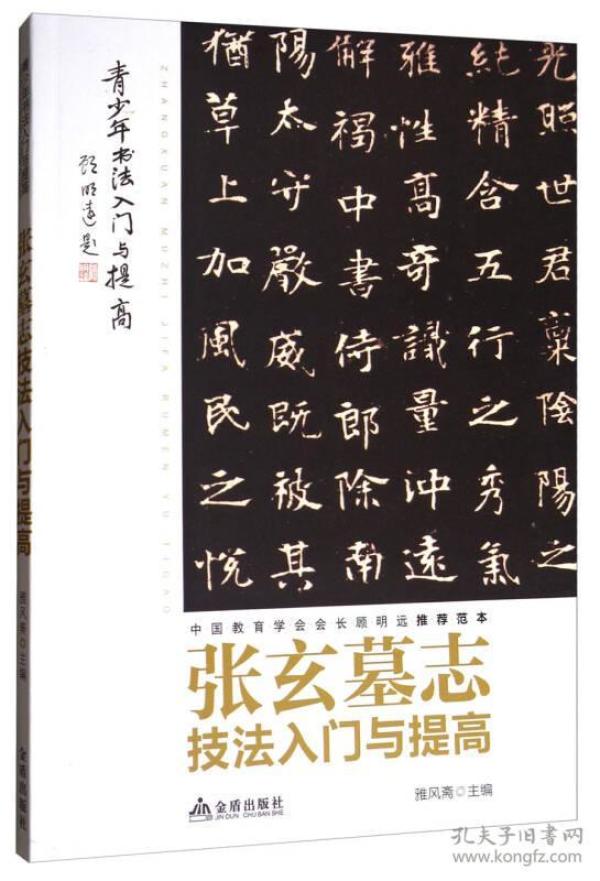 青少年书法入门与提高
顾明远题
ZHANGXUAN MUZHI JIFA RUMEN YU TIGAO
光照世君稟陰陽之
純精含五行之秀氣
雅性高奇識量沖遠
解褐中書侍郎除南
陽太守嚴威既被其
猶草上加風民之悦
中国教育学会会长顾明远推荐范本
张玄墓志
技法入门与提高
雅风斋○主编
金盾出版社
JIN DUN CHU BAN SHE
张玄墓志技法入门与提高
雅风斋○主编
孔夫子旧书网
www.kongfz.com